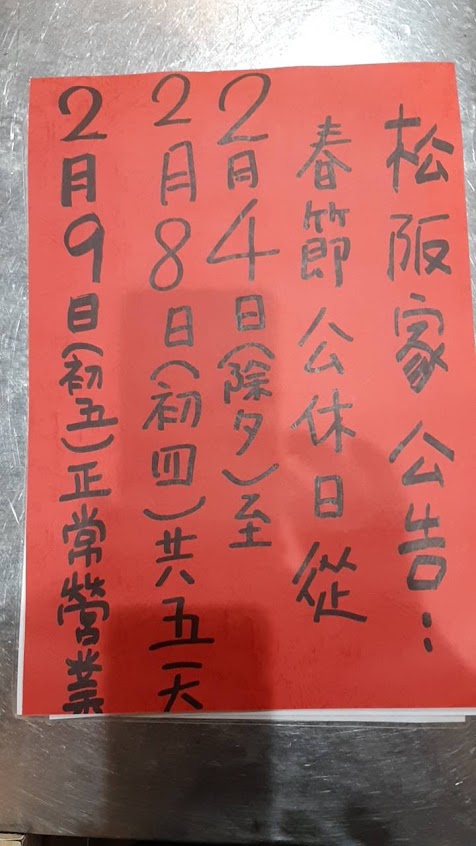 松阪家公告：
春節公休日從
2月4日(除夕)至
2月8日(初四)共五天
2月9日(初五)正常營業